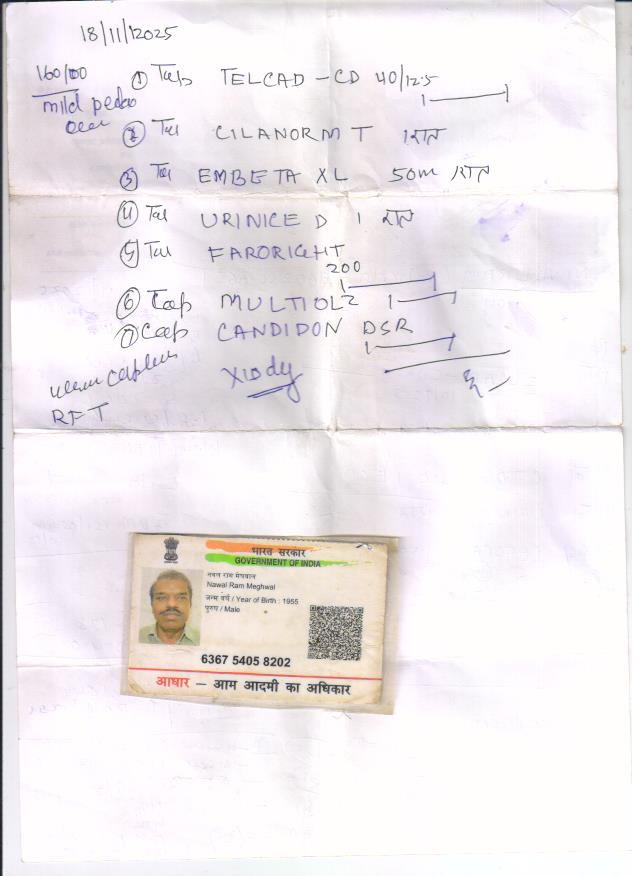 18/11/2025
160/100
① Tab TELCAD - CD 40/12.5
1 —
mild pedal
② Tab CILANORM T 1 रात
③ Tab EMBETA XL 50m 1 रात
④ Tab URINICE D 1 रात
⑤ Tab FARORIGHT
200
1 —
⑥ Cap MULTIOLZ 1 —
⑦ Cap CANDIDON DSR
1 —
X10 dy
RFT
भारत सरकार
GOVERNMENT OF INDIA
नवल राम मेघवाल
Nawal Ram Meghwal
जन्म वर्ष / Year of Birth : 1955
पुरुष / Male
6367 5405 8202
आधार – आम आदमी का अधिकार